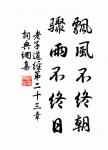 飄風不終朝
驟雨不終日
老子道經第二十三章
詞典網集